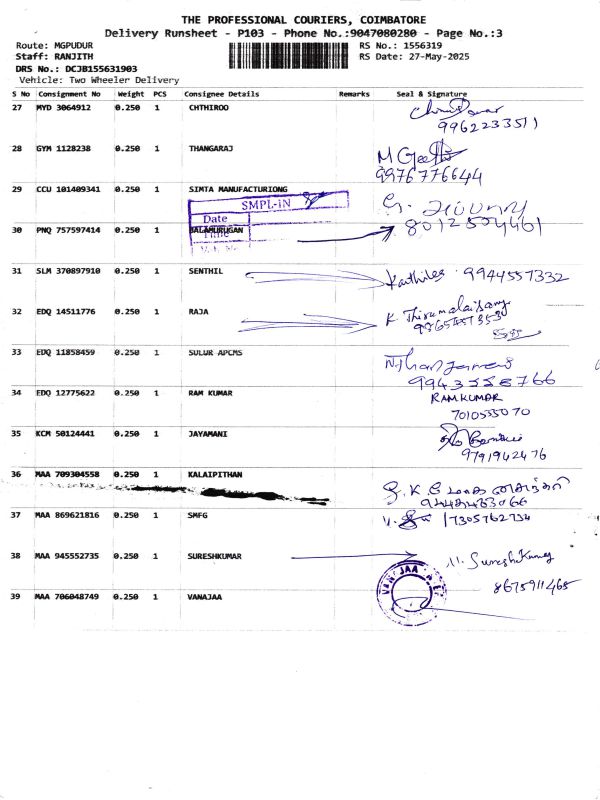 THE PROFESSIONAL COURIERS, COIMBATORE
Delivery Runsheet - P103 - Phone No.:9047080280 - Page No.:3
Route: MGPUDUR RS No.: 1556319
Staff: RANJITH RS Date: 27-May-2025
DRS No.: DCJB155631903
Vehicle: Two Wheeler Delivery
S No Consignment No Weight PCS Consignee Details Remarks Seal & Signature
27 MYD 3064912 0.250 1 CHTHIROO
9962233511
28 GYM 1128238 0.250 1 THANGARAJ M Geetha
9976776644
29 CCU 101409341 0.250 1 SIMTA MANUFACTURIONG
SMPL-IN
Date
30 PNQ 757597414 0.250 1 BALAMURUGAN 8012504461
Time
31 SLM 370897910 0.250 1 SENTHIL 9944557332
32 EDQ 14511776 0.250 1 RAJA K Thirumalaisamy
33 EDQ 11858459 0.250 1 SULUR APCMS
34 EDQ 12775622 0.250 1 RAM KUMAR RAMKUMAR
7010533070
35 KCM 50124441 0.250 1 JAYAMANI
9791942476
36 MAA 709304558 0.250 1 KALAIPITHAN
37 MAA 869621816 0.250 1 SMFG 7305762734
38 MAA 945552735 0.250 1 SURESHKUMAR M. SureshKumar
8675911465
39 MAA 706048749 0.250 1 VANAJAA VANAJAA